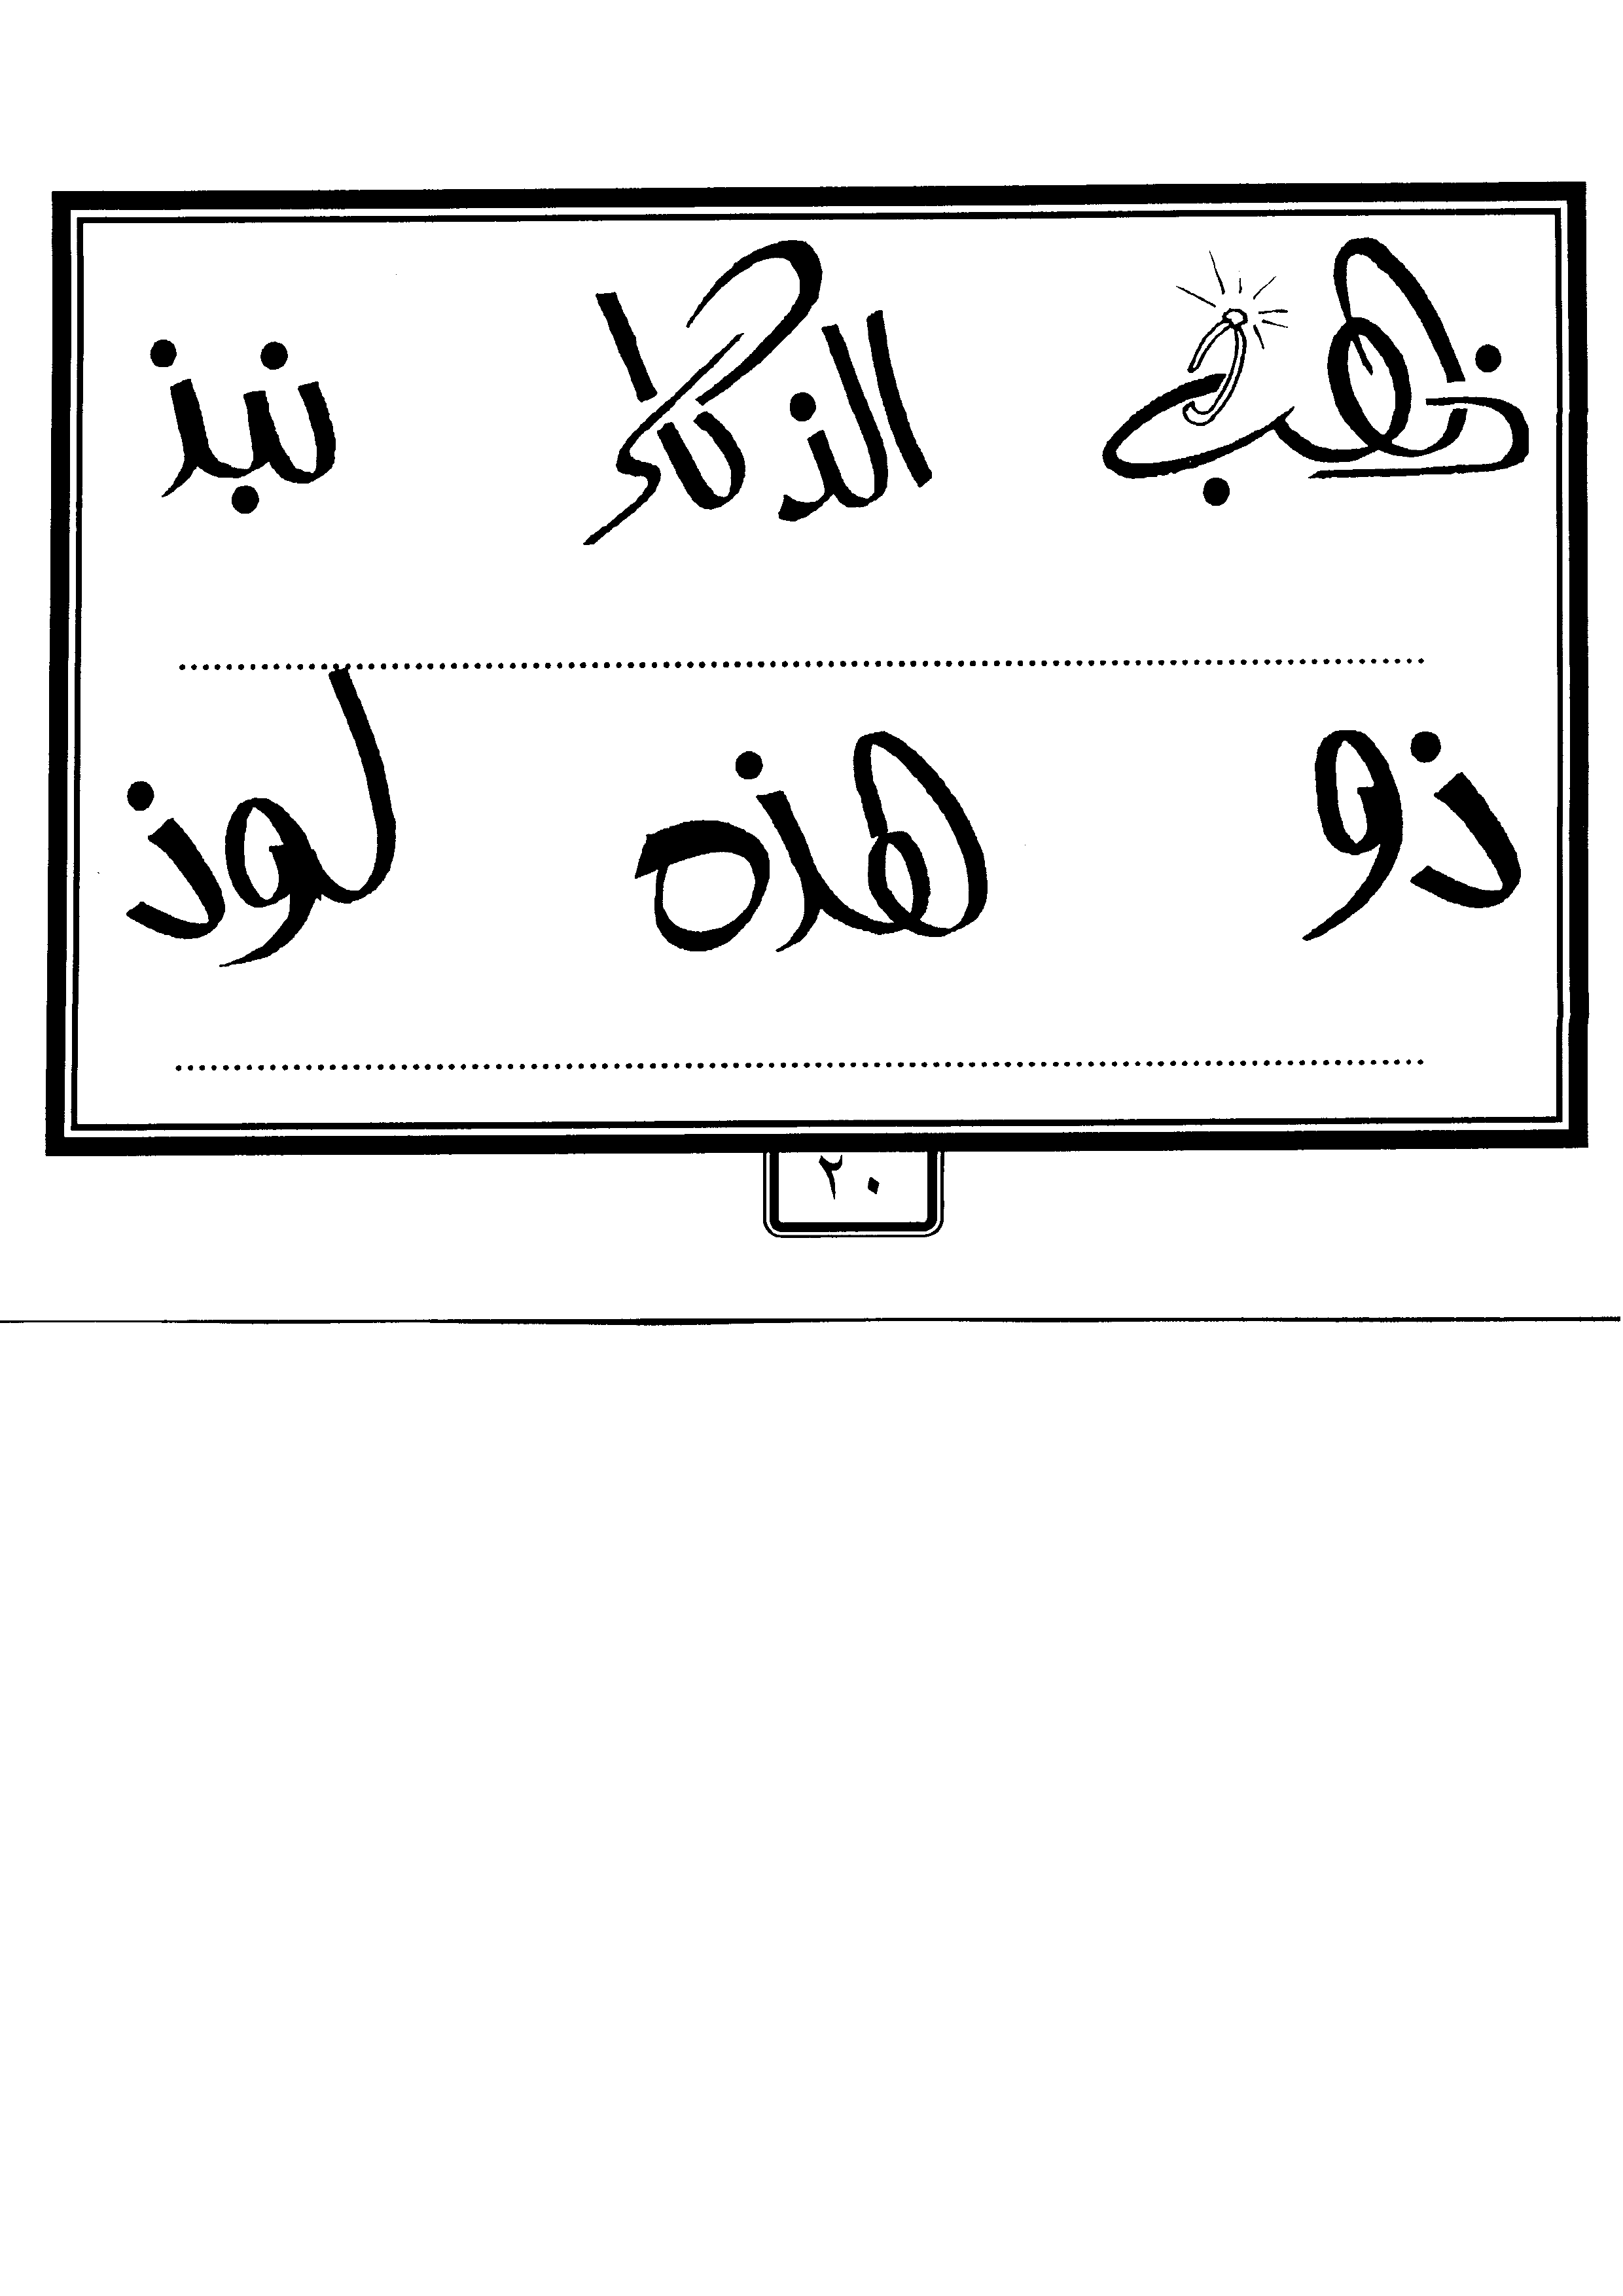 ذهب الذكاء نبذ
ذو هذه لوذ
٢٠